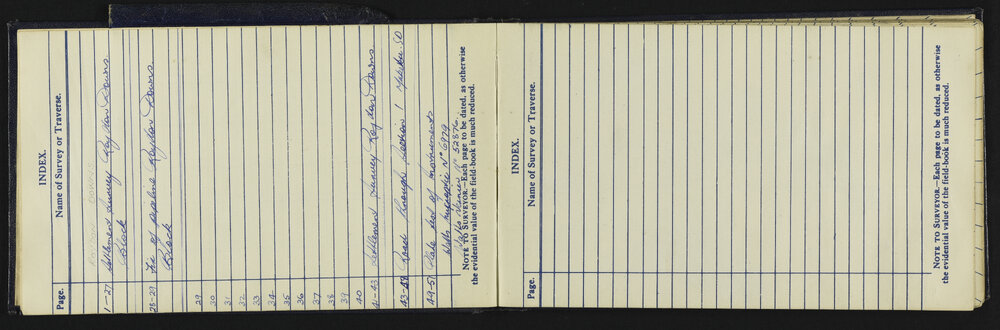 INDEX.
Page. Name of Survey or Traverse.
1-27 Settlement Survey Roydon Downs
Block
28-29 Tie of pipeline Roydon Downs
Block
29
30
31
32
33
34
35
36
37
38
39
40
41-43 Settlement Survey Roydon Downs
43-48 Road through Section 1
49-51 Plate
Watts Nº 6979
Watts Nº 52876
NOTE TO SURVEYOR.—Each page to be dated, as otherwise
the evidential value of the field-book is much reduced.
INDEX.
Page. Name of Survey or Traverse.
NOTE TO SURVEYOR.—Each page to be dated, as otherwise
the evidential value of the field-book is much reduced.